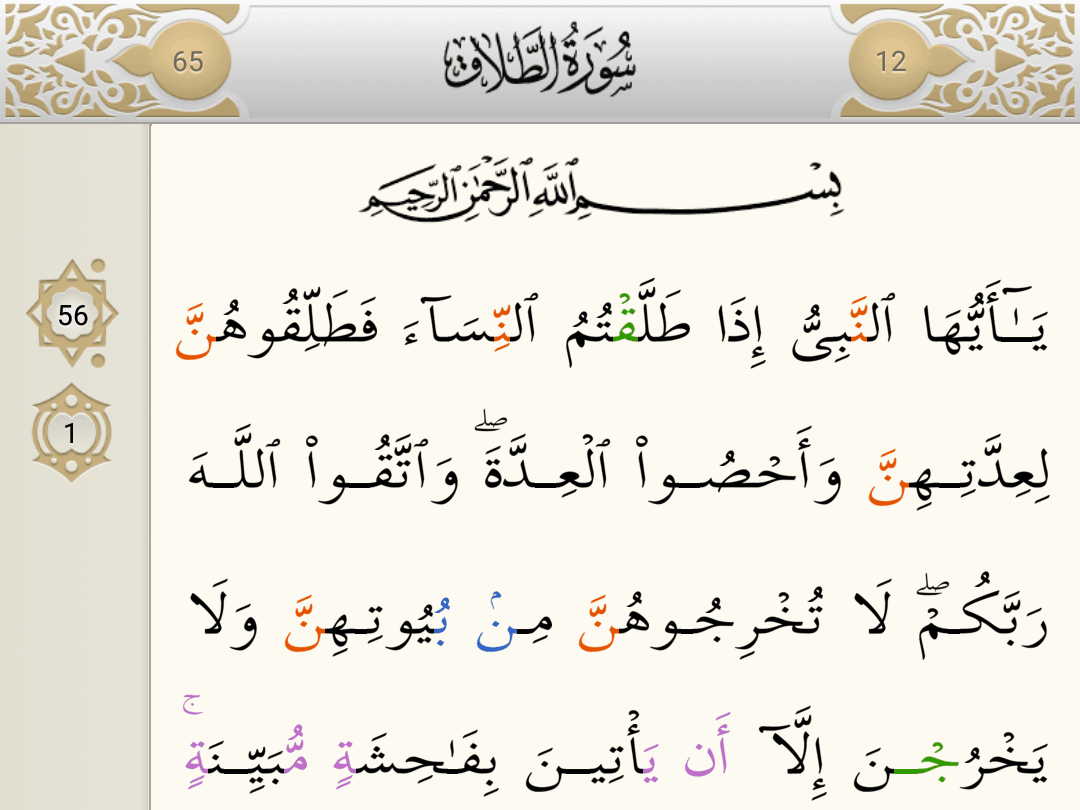 65 سُورَةُ الطَّلَاق 12
بِسْمِ ٱللَّهِ ٱلرَّحْمَٰنِ ٱلرَّحِيمِ
56
1
يَـٰٓأَيُّهَا ٱلنَّبِىُّ إِذَا طَلَّقْتُمُ ٱلنِّسَآءَ فَطَلِّقُوهُنَّ
لِعِدَّتِهِنَّ وَأَحْصُوا۟ ٱلْعِدَّةَ ۖ وَٱتَّقُوا۟ ٱللَّهَ
رَبَّكُمْ ۖ لَا تُخْرِجُوهُنَّ مِنۢ بُيُوتِهِنَّ وَلَا
يَخْرُجْنَ إِلَّآ أَن يَأْتِينَ بِفَـٰحِشَةٍ مُّبَيِّنَةٍ ۚ